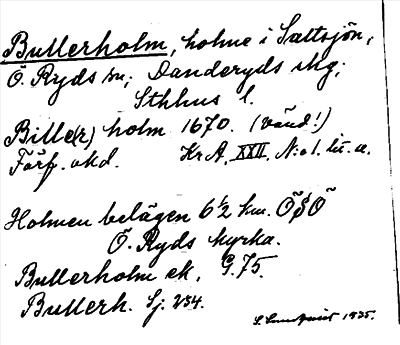 Bullerholm, holme i Saltsjön,
Ö. Ryds sn; Danderyds skg;
Sthlms l.
Bille(r) holm 1670. (vänd!)
Förf. okd. Kr A. XXII. N:o 1. lit. a.
Holmen belägen 6 1/2 km. ÖSÖ
Ö. Ryds kyrka.
Bullerholm ek. G. 75.
Bullerh. Sj. 234.
S. Lundqvist 1935.